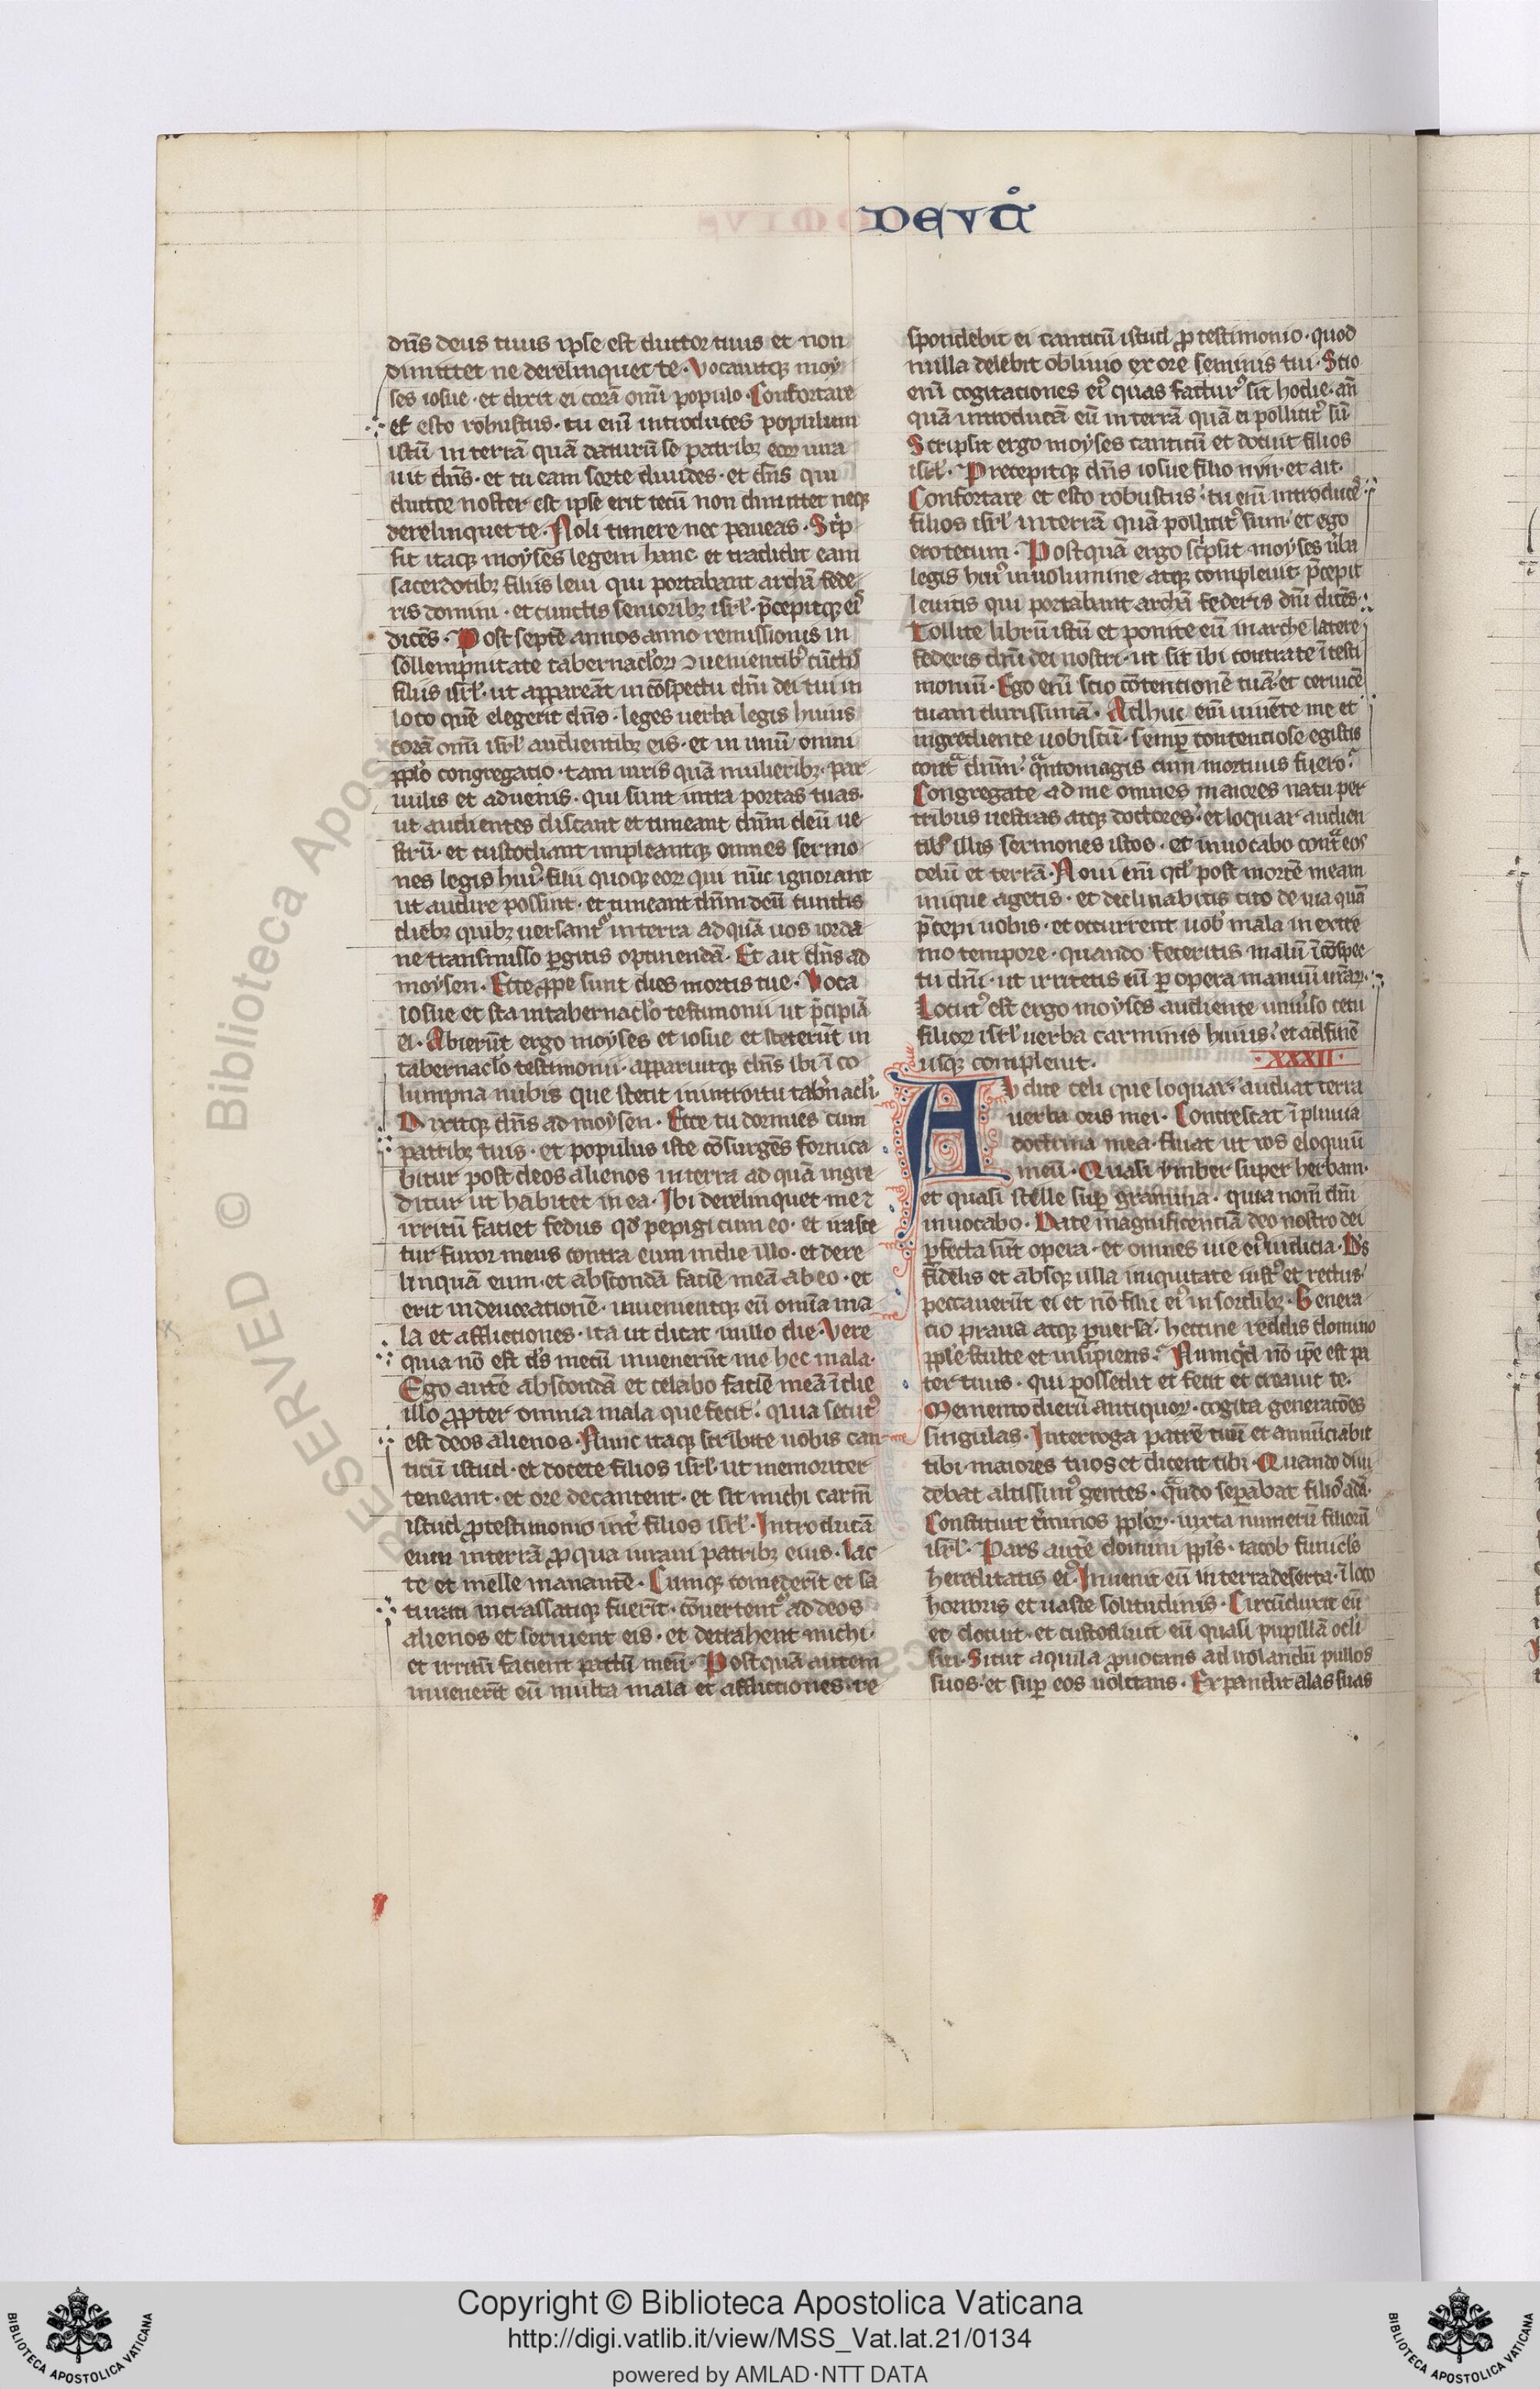 DEVT̊
dn̄s deus tuus ipse est ductor tuus et non
dimittet ne derelinquet te · Vocauitqꝫ moy
ses iosue · et dixit ei corā om̄i populo · Confortare
et esto robustus · tu enī introduces populum
istū in terrā quā daturū se patribꝫ eoꝝ iura
uit dn̄s · et tu eam sorte diuides · et dn̄s qui
ductor noster est ipse erit tecū non dimittet neqꝫ
derelinquet te · Noli timere nec paueas · Sc̄p
sit itaqꝫ moyses legem hanc · et tradidit eam
sacerdotibꝫ filiis leui qui portabant archā fede
ris domini · et cunctis senioribꝫ isrl̄ · p̄cepitqꝫ ei᷒
dicēs · Post septē annos anno remissionis in
sollempnitate tabernacl̓oꝝ ꝯuenientibꝰ cūctis
filiis isrl̄ · ut appareāt in cōspectu dn̄i dei tui in
loco quē elegerit dn̄s · leges uerba legis huius
corā om̄i isrl̄ audientibꝫ eis · et in unū omni
ppl̓o congregatio · tam uiris quā mulieribꝫ · par
uulis et aduenis · qui sunt intra portas tuas ·
ut audientes discant et timeant dn̄m deū ue
strū · et custodiant impleantqꝫ omnes sermo
nes legis huiꝰ · filii quoqꝫ eoꝝ qui nūc ignorant
ut audire possint · et timeant dn̄m deū cunctis
diebꝫ quibꝫ uersantᷣ in terra ad quā uos iorda
ne transmisso ꝑgitis optinendā · Et ait dn̄s ad
moysen · Ecce ꝓpe sunt dies mortis tue · Voca
iosue et sta in tabernacl̓o testimonii ut p̄cipiā
ei · Abierūt ergo moyses et iosue et steterūt in
tabernacl̓o testimonii · apparuitqꝫ dn̄s ibi ī co
lumpna nubis que stetit in introitu tab̓nacl̓i ·
Dixitqꝫ dn̄s ad moysen · Ecce tu dormies cum
patribꝫ tuis · et populus iste cōsurgēs fornica
bitur post deos alienos in terra ad quā ingre
ditur ut habitet in ea · Ibi derelinquet me ⁊
irritū faciet fedus qd̄ pepigi cum eo · et irasce
tur furor meus contra eum in die illo · et dere
linquā eum · et abscondā faciē meā ab eo · et
erit in deuorationē · inuenientqꝫ eū om̄ia ma
la et afflictiones · ita ut dicat in illo die · Vere
quia nō est ds̄ mecū inuenerūt me hec mala ·
Ego autē abscondā et celabo faciē meā ī die
illo ꝓpter omnia mala que fecit · quia secutꝰ
est deos alienos · Nunc itaqꝫ scribite uobis can
ticū istud · et docete filios isrl̄ · ut memoriter
teneant · et ore decantent · et sit michi carm̄
istud ꝓ testimonio int̓ filios isrl̄ · Introducā
eum in terrā ꝓ qua iuraui patribꝫ eius · lac
te et melle manantē · Cumqꝫ comederīt et sa
turati incrassatiqꝫ fuerīt · cōuertentᷣ ad deos
alienos et seruient eis · et detrahent michi ·
et irritū facient pactū meū · Postquā autem
inuenerīt eū multa mala et afflictiones · re
spondebit ei canticū istud ꝓ testimonio · quod
nulla delebit obliuio ex ore seminis tui · Scio
enī cogitaciones eiꝰ quas facturꝰ sit hodie · an̄
quā introducā eū in terrā quā ei pollicitꝰ sū
Scripsit ergo moyses canticū et docuit filios
isrl̄ · Precepitqꝫ dn̄s iosue filio nyn · et ait ·
Confortare et esto robustus · tu enī introduceᷤ
filios isrl̄ in terrā quā pollicitꝰ sum · et ego
ero tecum · Postquā ergo sc̓psit moyses ūba
legis huiꝰ in uolumine atqꝫ compleuit p̄cepit
leuitis qui portabant archā federis dn̄i dicēs ·
Tollite librū istū et ponite eū in arche latere
federis dn̄i dei nostri · ut sit ibi contra te ī testi
moniū · Ego enī scio cōtentionē tuā · et ceruicē
tuam durissimā · Adhuc enī uiuente me et
ingrediente uobiscū · semꝑ contentiose egistis
cont̓ dn̄m · q̓ntomagis cum mortuus fuero ·
Congregate ad me omnes maiores natu per
tribus uestras atqꝫ doctores · et loquar audien
tibꝰ illis sermones istos · et inuocabo cont̓ eos
celū et terrā · Noui enī qd̄ post mortē meam
inique agetis · et declinabitis cito de uia quā
p̄cepi uobis · et occurrent uob᷒ mala in extre
mo tempore · quando feceritis malū ī cōspec
tu dn̄i · ut irritetis eū ꝑ opera manuū ur̄aꝝ ·
Locutꝰ est ergo moyses audiente uniu̓so cetu
filioꝝ isrl̄ uerba carminis huius · et ad finē
usqꝫ compleuit · · XXXII ·
Audite celi que loquar · audiat terra
uerba oris mei · Concrescat ī pluuia
doctrina mea · fluat ut ros eloquiū
meū · Quasi ymber super herbam ·
et quasi stille suꝑ gramina · quia nom̄ dn̄i
inuocabo · Date magnificentiā deo nostro dei
ꝑfecta sūt opera · et omnes uie eiꝰ iudicia · Ds̄
fidelis et absqꝫ ulla iniquitate iustꝰ et rectus ·
peccauerūt ei et nō filii eiꝰ in sordibꝫ · Genera
cio praua atqꝫ ꝑuersa · heccine reddis domino
ppl̓e stulte et insipiens · Numqd̓ nō ip̄e est pa
ter tuus · qui possedit et fecit et creauit te ·
Memento dierū antiquoꝝ · cogita generatōes
singulas · Interroga patrē tuū et annūciabit
tibi · maiores tuos et dicent tibi · Quando diui
debat altissimꝰ gentes · q̓ndo seꝑabat filioᷤ adā ·
Constituit t̓minos ppl̓oꝝ · iuxta numerū filiorū
isrl̄ · Pars autē domini ppl̓s · iacob funicl̓s
hereditatis eiꝰ · Inuenit eū in terra deserta · ī loco
horroris et uaste solitudinis · Circūduxit eū
et docuit · et custodiuit eū quasi pupillā ocl̓i
sui · Sicut aquila ꝓuocans ad uolandū pullos
suos · et suꝑ eos uolitans · Expandit alas suas
RESERVED © Biblioteca Apos
Copyright © Biblioteca Apostolica Vaticana
http://digi.vatlib.it/view/MSS_Vat.lat.21/0134
powered by AMLAD·NTT DATA
BIBLIOTECA APOSTOLICA VATICANA
BIBLIOTECA APOSTOLICA VATICANA